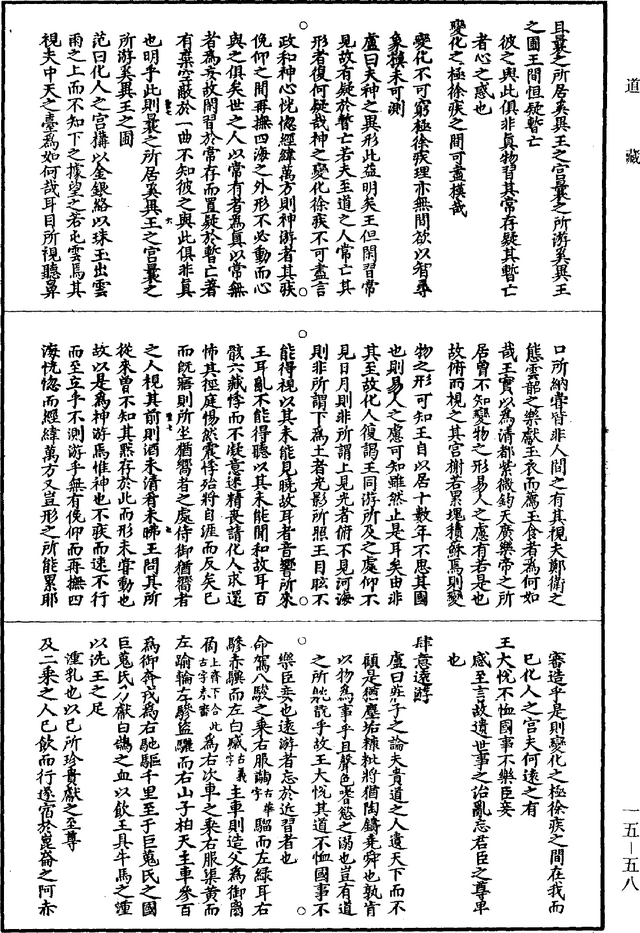 道藏
且曩之所居奚異王之宮曩之所游奚異王
之圃王間恒疑暫亡
彼之與此俱非眞物習其常存疑其暫亡
者心之惑也
變化之極徐疾之間可盡模哉
變化不可窮極徐疾理亦無間欲以智尋
象模未可測
盧曰夫神之異形此益明矣王但閑習常
見故有疑於暫亡若夫至道之人常亡其
形者復何疑哉神之變化徐疾不可盡言
政和神心恍惚經緯萬方則神游者其疾
俛仰之間再撫四海之外形不必動而心
與之俱矣世之人以常有者為眞以常無
者為妄故閑習於常存而置疑於暫亡著
有棄空蔽於一曲不知彼之與此俱非眞
也明乎此則曩之所居奚異王之宮曩之
所游奚異王之圃
范曰化人之宮構以金銀絡以珠玉出雲
雨之上而不知下之據望之若屯雲焉其
視夫中天之臺為如何哉耳目所視聽鼻
口所納嘗皆非人間之有其視夫鄭衛之
態雲韶之樂獻玉衣而薦玉食者為何如
哉王實以為清都紫微鈞天廣樂帝之所
居曾不知變物之形易人之慮有若是也
故俯而視之其宮榭若累塊積蘇焉則變
物之形可知王自以居十數年不思其國
也則易人之慮可知雖然止是耳矣由非
其至故化人復謁王同游所及之處仰不
見日月則非所謂上見光者俯不見河海
則非所謂下為土者光影所照王目眩不
能得視以其未能見曉故耳音響所來
王耳亂不能得聽以其未能聞和故耳百
骸六藏悸而不凝意迷精喪請化人求還
怖其徑庭惕然震悸殆將自涯而反矣已
而既寤則所坐猶嚮者之處侍御猶嚮者
之人視其前則酒未清肴未晞王問其所
從來曾不知其默存於此而形未嘗動也
故以是為神游焉惟神也不疾而速不行
而至立乎不測游乎無有俛仰而再撫四
海恍惚而經緯萬方又豈形之所能累耶
審造乎是則變化之極徐疾之間在我而
已化人之宮夫何遠之有
王大悅不恤國事不樂臣妾
感至言故遺世事之治亂忘君臣之尊卑
也
肆意遠游
盧曰莊子之論夫貴道之人遺天下而不
顧是猶塵垢糠秕將猶陶鑄堯舜也孰肯
以物為事乎且聲色嗜慾之溺也豈有道
之所躭翫乎故王大悅其道不恤國事不
樂臣妾也遠游者忘於近習者也
命駕八駿之乘右服𦽊古華字騮而左綠耳右
驂赤驥而左白𣚘古義字主車則造父為御𧮪
𠧫上齊下合此古字未審為右次車之乘右服渠黃而
左踰輪左驂盜驪而右山子柏夭主車參百
為御奔戎為右馳驅千里至于巨蒐氏之國
巨蒐氏乃獻白鵠之血以飲王具牛馬之湩
以洗王之足
湩乳也以己所珍貴獻之至尊
及二乘之人已飲而行遂宿於崑崙之阿赤
一五-五八